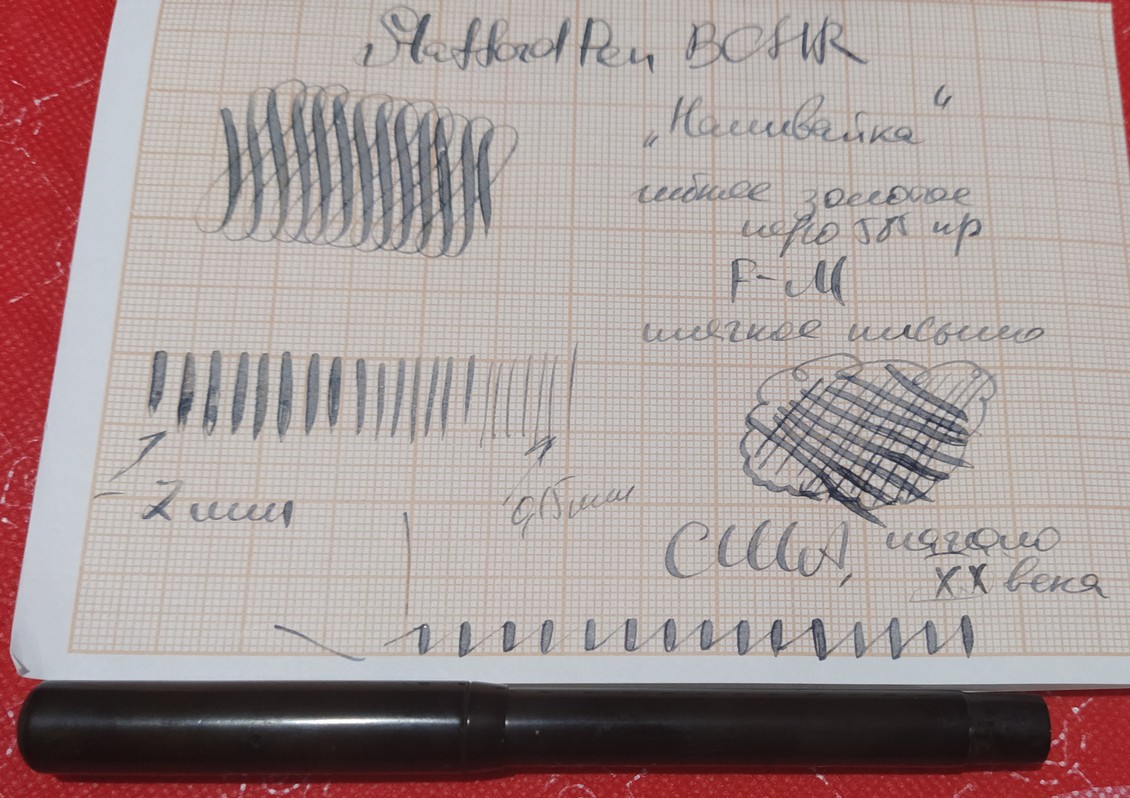 Stafford Pen BCHR
„Наливайка“
гибкое золотое
перо 585 пр
F-M
мягкое письмо
2 мм
0,15 мм
США, начало
XX века